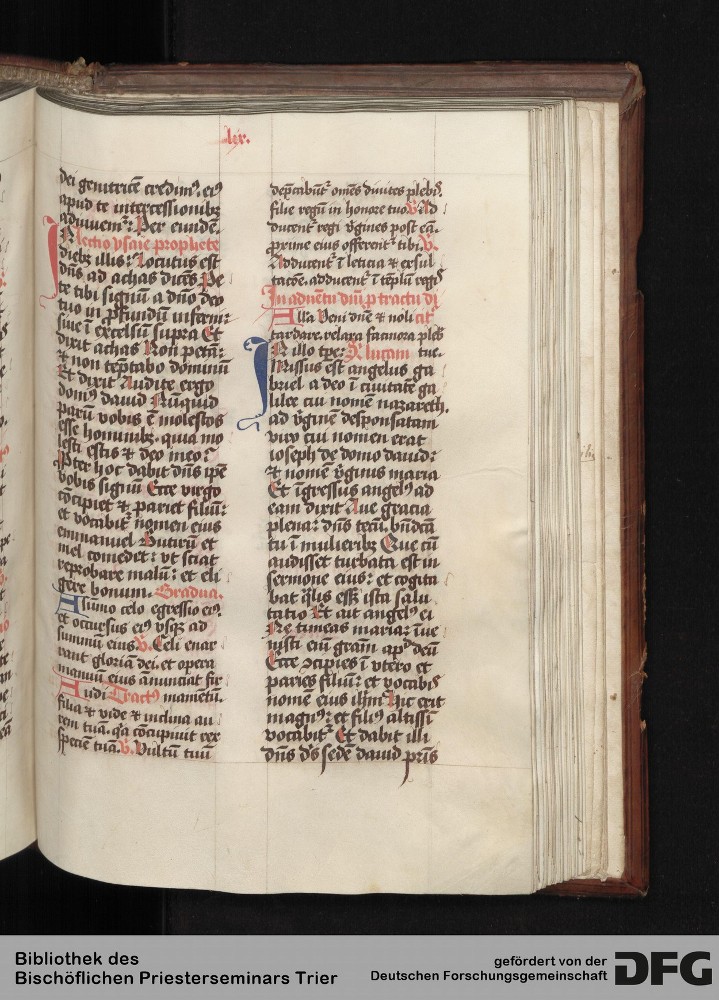 lix.
dei genitricē credimꝰ. eiꝰ
apud te intercessionibꝫ
adiuuemᷣ. Per eundē.
Lectio ysaie prophete
In diebꝫ illis: Locutus est
dn̄s ad achas dicēs Pe
te tibi signū a dn̄o deo
tuo in ꝓfundū inferni:
siue ī excelsū supra Et
dixit achas Non petā:
⁊ non tēptabo dominū
Et dixit Audite ergo
domꝰ dauid Nūquid
parū vobis ē molestos
esse hominibꝫ. quia mo
lesti estis ⁊ deo meo?
Pꝑter hoc dabit dn̄s ipē
vobis signū Ecce virgo
cōcipiet ⁊ pariet filiū:
et vocabitᷣ nomen eius
emmanuel Butirū et
mel comedet: vt sciat
reprobare malū: et eli
gere bonum. Gradua.
A sūmo celo egressio eiꝰ.
et occursus eiꝰ vsqꝫ ad
summū eius. V. Celi enar
rant gloriā dei. et opera
manuū eius ānunciat fir
Audi Tractꝰ mamētū.
filia ⁊ vide ⁊ inclina au
rem tuā. qa cōcupiuit rex
speciē tuā. V. Vultū tuū
dep̄cabūtᷣ om̄es diuites plebis
filie regū in honore tuo. V. Ad
ducentᷣ regi v̓gines post eā.
ꝓxime eius offerentᷣ tibi. V.
Adducentᷣ ī leticia ⁊ exsul
tacōe. adducentᷣ ī tēplū regis
In aduētu dn̄i ꝑ tractu di
Alla Veni dn̄e ⁊ noli citᷣ
tardare. relaxa facinora pleb
In illo tpe: S. lucam tue.
Missus est angelus ga
briel a deo ī ciuitatē ga
lilee cui nomen nazareth.
ad v̓ginē desponsatam
viro cui nomen erat
ioseph de domo dauid:
⁊ nomē v̓ginis maria
Et īgressus angelꝰ ad
eam dixit Aue gracia
plena: dn̄s tecū. bn̄dcā
tu ī mulieribꝫ Que cū
audisset turbata est in
sermone eius: et cogita
bat qualis eēt ista salu
tatio Et ait angelꝰ ei
Ne timeas maria: īue
nisti enī grām apd̓ deū
Ecce ↄcipies ī vtero et
paries filiū: et vocabis
nomē eius ihm̄ Hic erit
magnꝰ: et filiꝰ altissi
vocabitᷣ Et dabit illi
dn̄s ds̄ sedē dauid pr̄is
Bibliothek des
Bischöflichen Priesterseminars Trier
gefördert von der
Deutschen Forschungsgemeinschaft
DFG